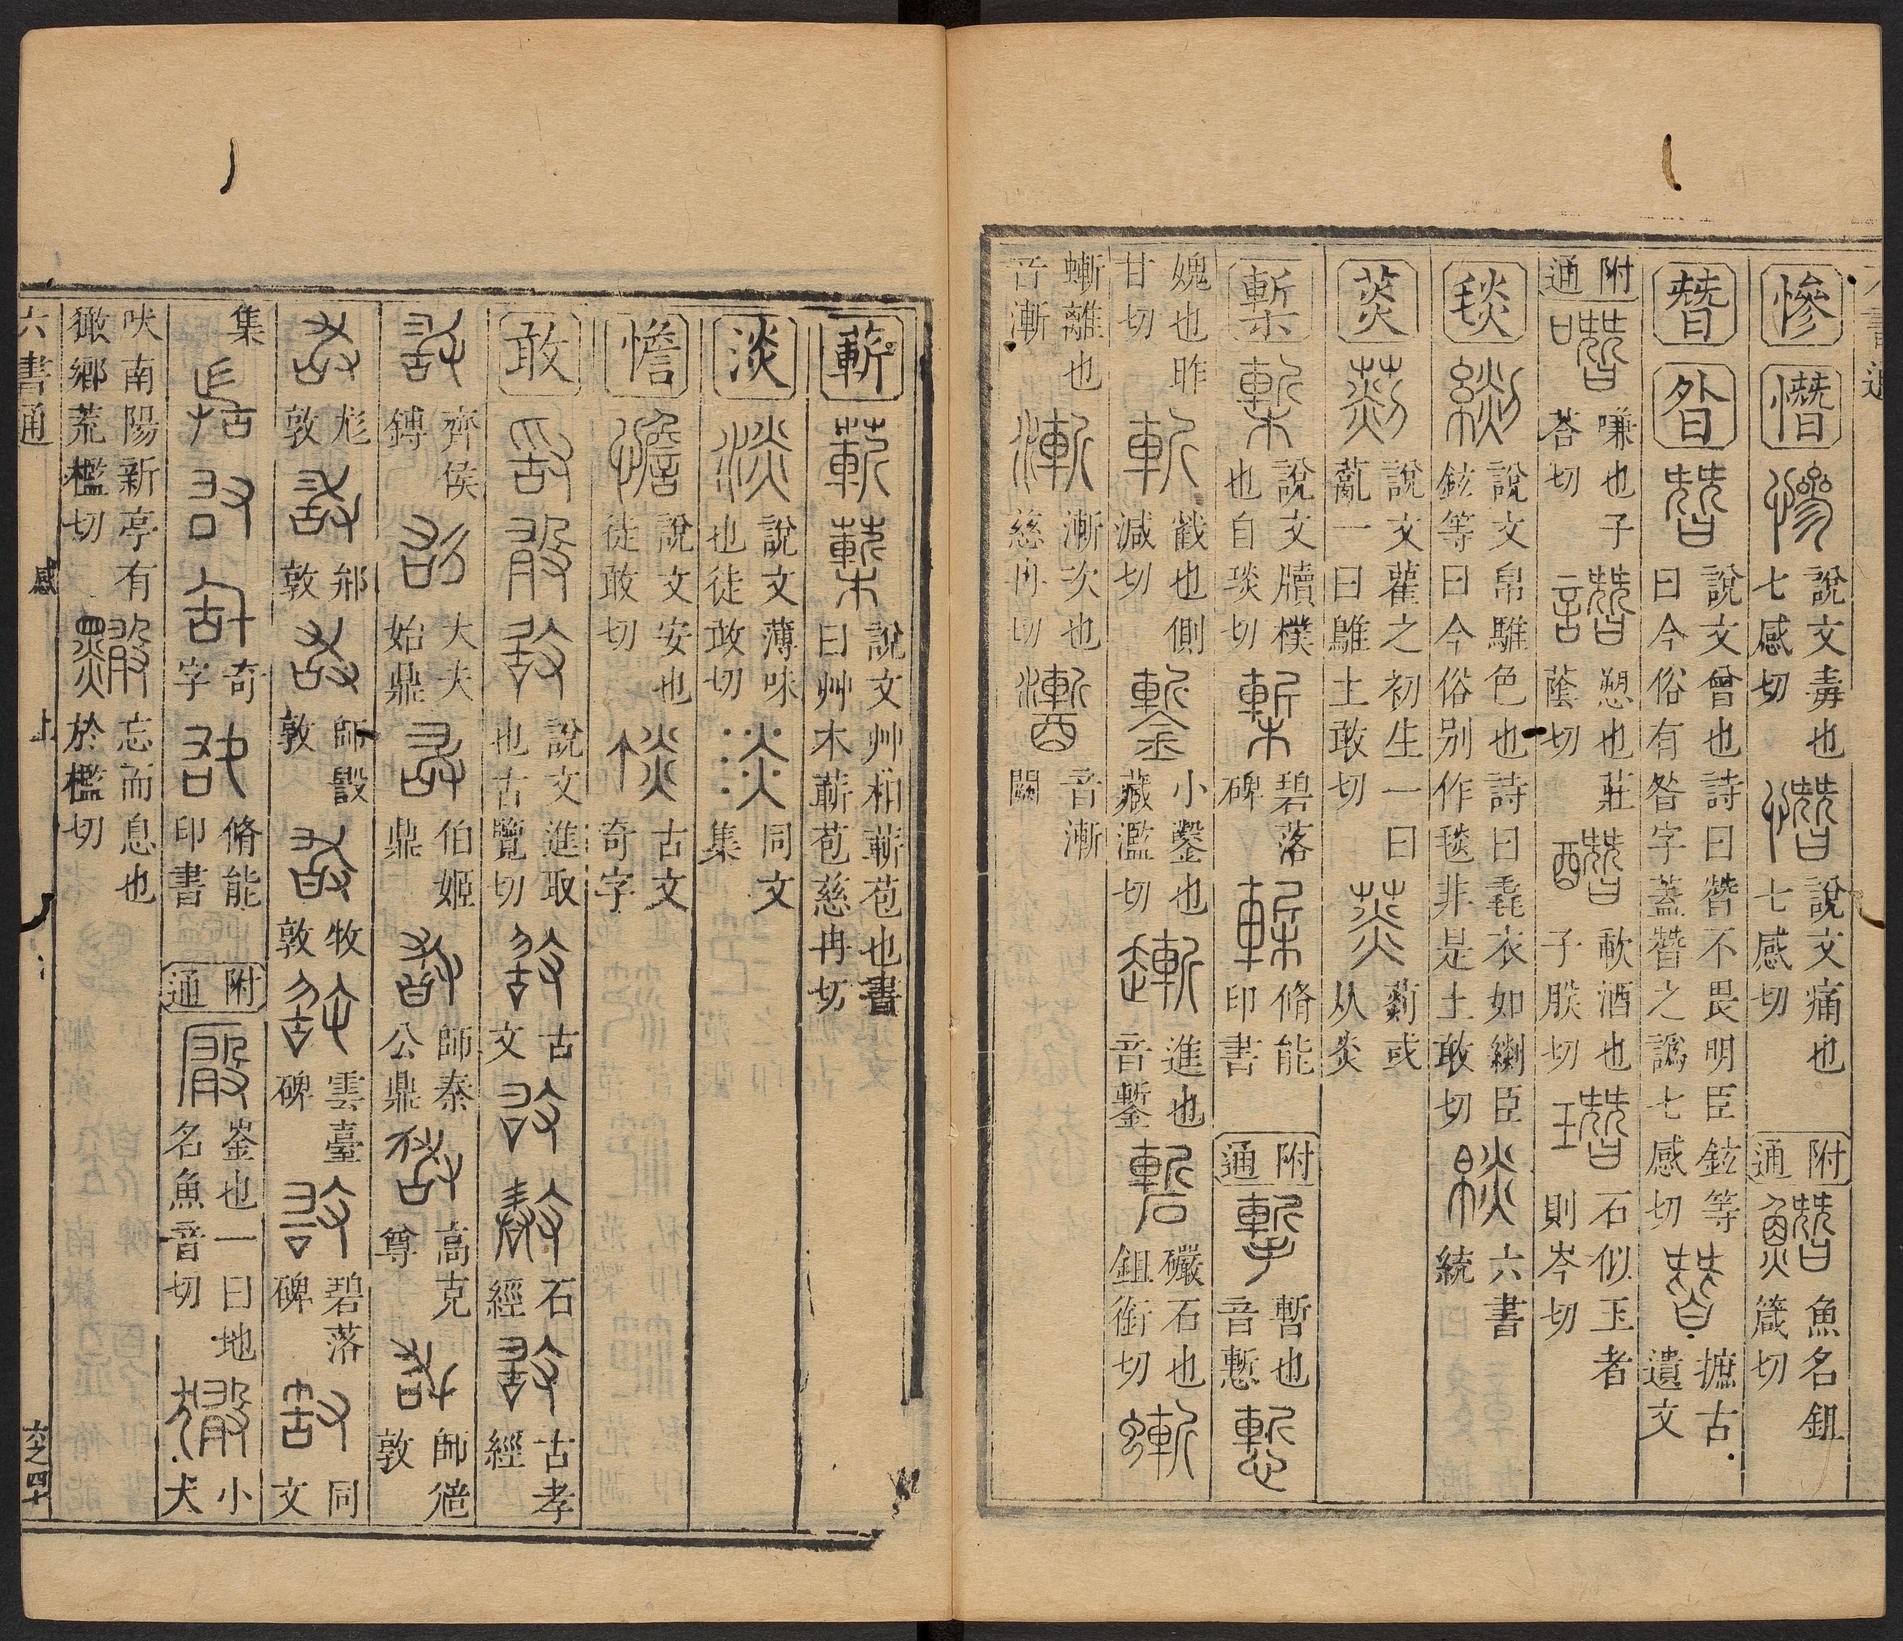 慘 憯 說文毒也七感切 說文痛也七感切 附通 魚名鉏箴切
朁 㫺 說文曾也詩曰朁不畏明臣鉉等曰今俗有昝字蓋朁之譌七感切 摭古遺文
附通 嗛也子荅切 愬也莊蔭切 歃酒也子朕切 石似玉者則岑切
毯 說文帛騅色也詩曰毳衣如緂臣鉉等曰今俗別作毯非是土敢切 六書統
菼 說文雚之初生一曰薍一曰鵻土敢切 菼 薍或从炎
槧 說文牘樸也自琰切 碧落碑 脩能印書 附通 暫也音慙
媿也昨甘切 斬 戳也側減切 小鑿也藏濫切 進也音塹 礹石也鉏銜切
螹離也音漸 漸次也慈冉切 音漸 闕
蔪 說文艸相蔪苞也書曰艸木蔪苞慈冉切
淡 說文薄味也徒敢切 同文集
憺 說文安也徒敢切 古文奇字
敢 說文進取也古覽切 古文 石經 古孝經
齊侯鎛 大夫始鼎 伯姬鼎 師秦公鼎 高克尊 師𢘅敦
彪敦 郱敦 師㲃敦 牧敦 雲臺碑 碧落碑 同文
集 奇字 脩能印書 附通 崟也一曰地名魚音切 小犬
吠南陽新亭有㺖鄉荒檻切 忘而息也於檻切
六書通 感 上 六之四十